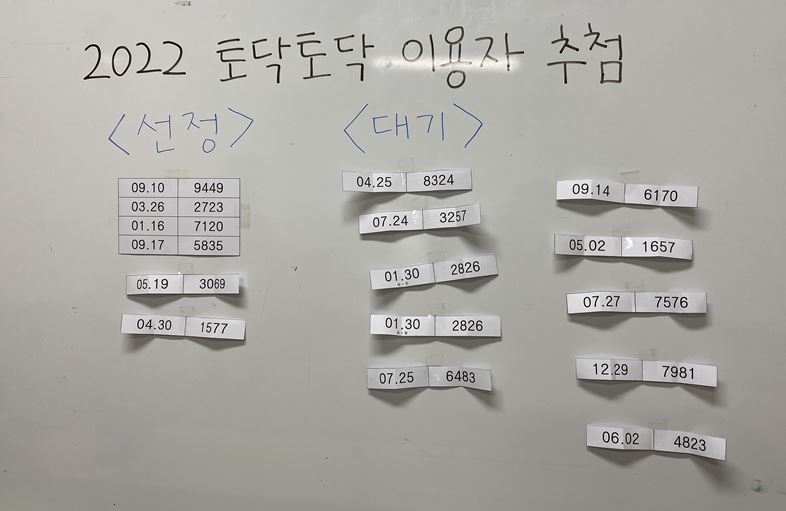 2022 토닥토닥 이용자 추첨
<선정>
09.10 9449
03.26 2723
01.16 7120
09.17 5835
05.19 3069
04.30 1577
<대기>
04.25 8324
07.24 3257
01.30 2826
01.30 2826
07.25 6483
09.14 6170
05.02 1657
07.27 7576
12.29 7981
06.02 4823